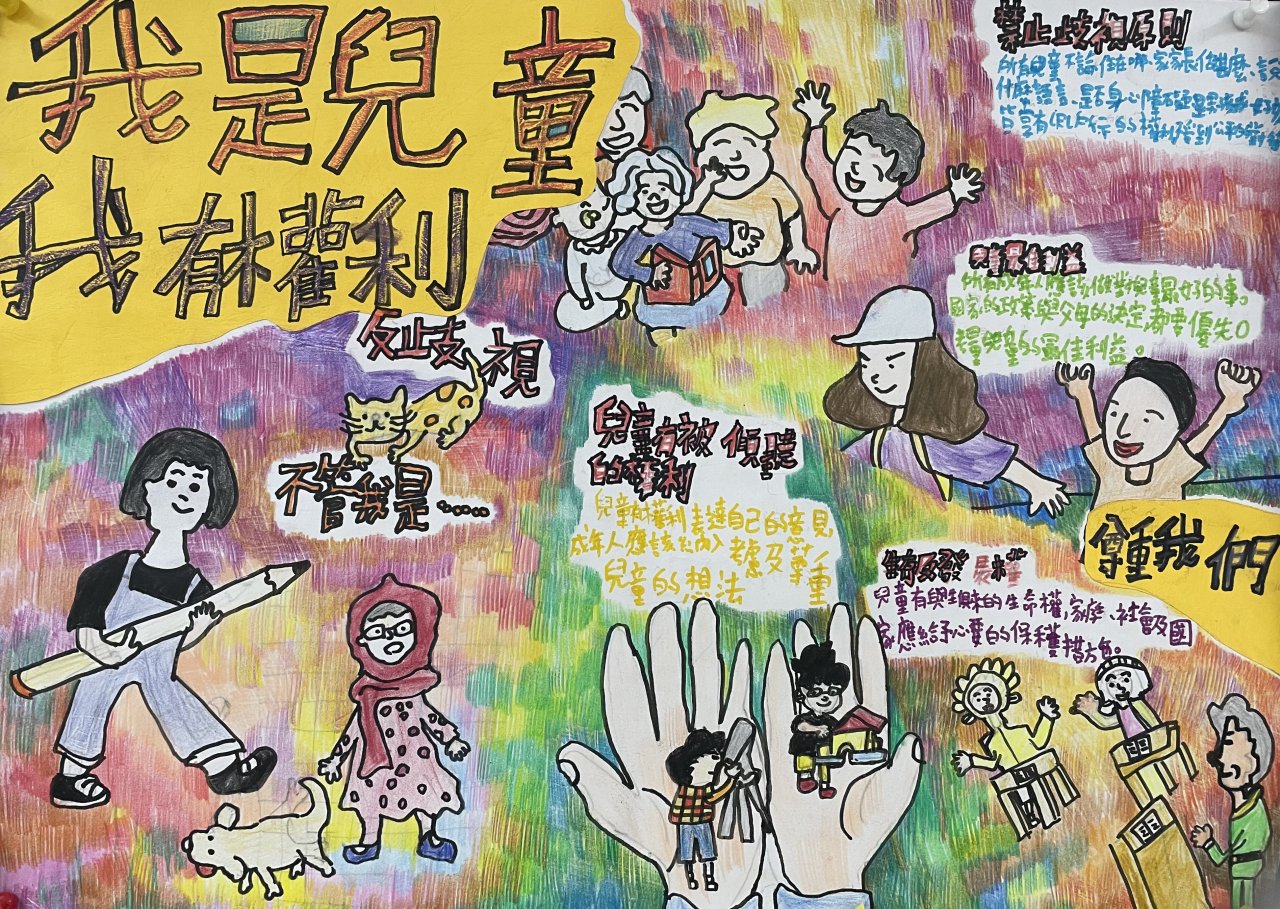 我是兒童
我有權利
禁止歧視原則
所有兒童不論住在哪、家長做甚麼、說
什麼語言、是否身心障
皆享有
的權利
兒童最佳利益
所有成年人應該做對兒童最好的事。
國家的政策與父母的決定都要優先
兒童的最佳利益。
反歧視
不管我是......
兒童有被傾聽
的權利
兒童有權利表達自己的意見
成年人應該納入考慮及尊重
兒童的想法
尊重我們
發展權
兒童有與生俱來的生命權,家庭、社會及國
家應給予必要的保護措施。